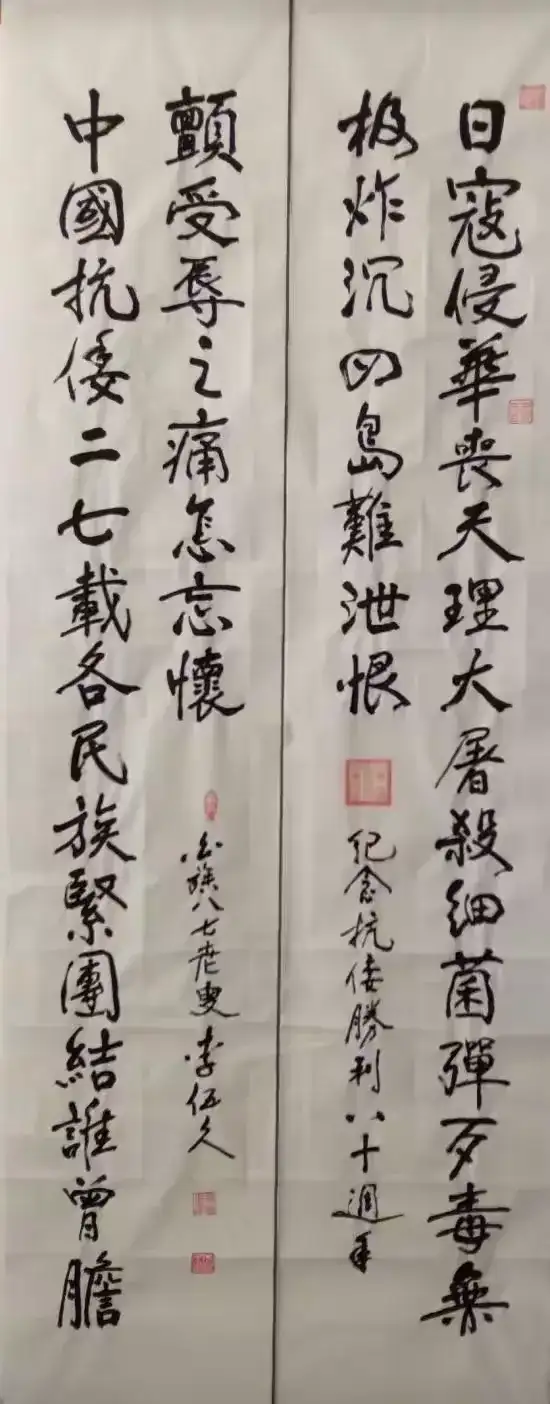 日寇侵華喪天理大屠殺細菌彈歹毒無
极炸沉四島難泄恨
紀念抗倭勝利八十週年
中國抗倭二七載各民族緊團結誰曾膽
顫受辱之痛怎忘懷
白族八七老叟李伍久